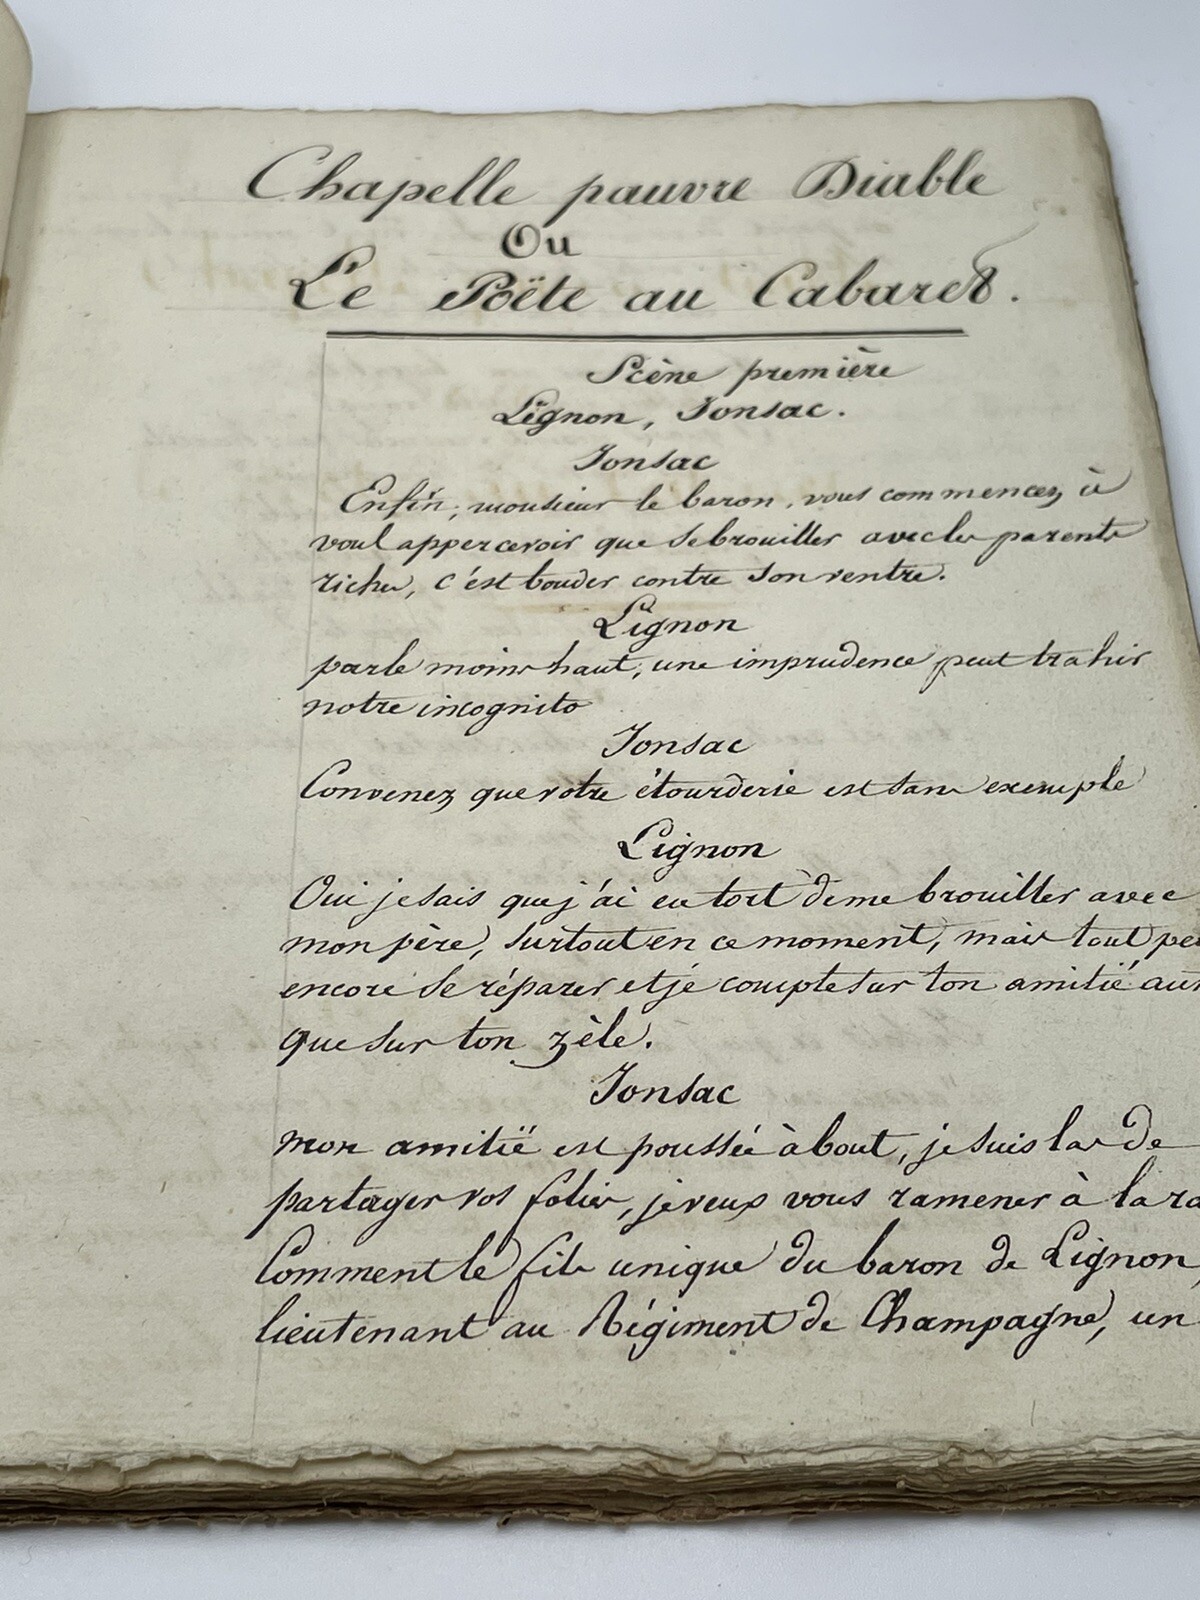 Chapelle pauvre Diable
Ou
Le Poëte au Cabaret.
Scène première
Lignon, Jonsac.
Jonsac
Enfin, monsieur le baron, vous commencez à
vous appercevoir que se brouiller avec les parents
riches, c'est bouder contre son ventre.
Lignon
parle moins haut, une imprudence peut trahir
notre incognito
Jonsac
Convenez que votre étourderie est sans exemple
Lignon
Oui je sais que j'ai eu tort de me brouiller avec
mon père, surtout en ce moment, mais tout peu
encore se réparer et je compte sur ton amitié aut
que sur ton zèle.
Jonsac
mon amitié est poussée à bout, je suis las de
partager vos folies, je veux vous ramener à la ra
Comment le fils unique du baron de Lignon,
lieutenant au Régiment de Champagne, un